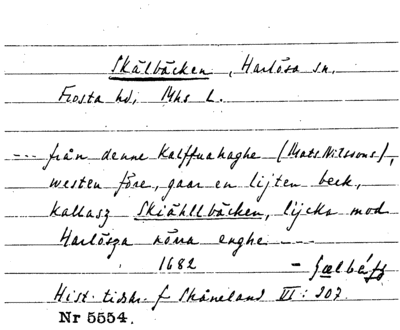 Skälbäcken, Harlösa sn.
Frosta hd, Mhs L.
--- från denne Kalffuahaghe (Mats Nilssons),
westen före, gaar en lijten beck,
kallasz Skiähllbäcken, lijcka mod
Harlösza norra enghe ---
1682 -
Hist. tidskr. f Skåneland VI: 207.
Nr 5554.